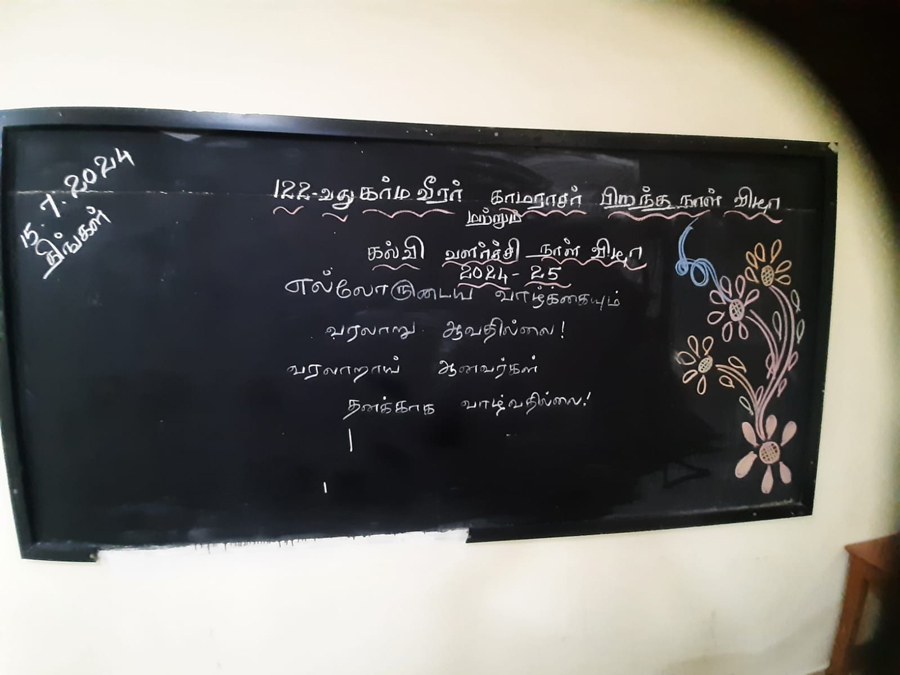 15.7.2024
திங்கள்
122-வது கர்ம வீரர் காமராசர் பிறந்த நாள் விழா
மற்றும்
கல்வி வளர்ச்சி நாள் விழா
2024-25
எல்லோருடைய வாழ்க்கையும்
வரலாறு ஆவதில்லை!
வரலாறாய் ஆனவர்கள்
தனக்காக வாழ்வதில்லை!